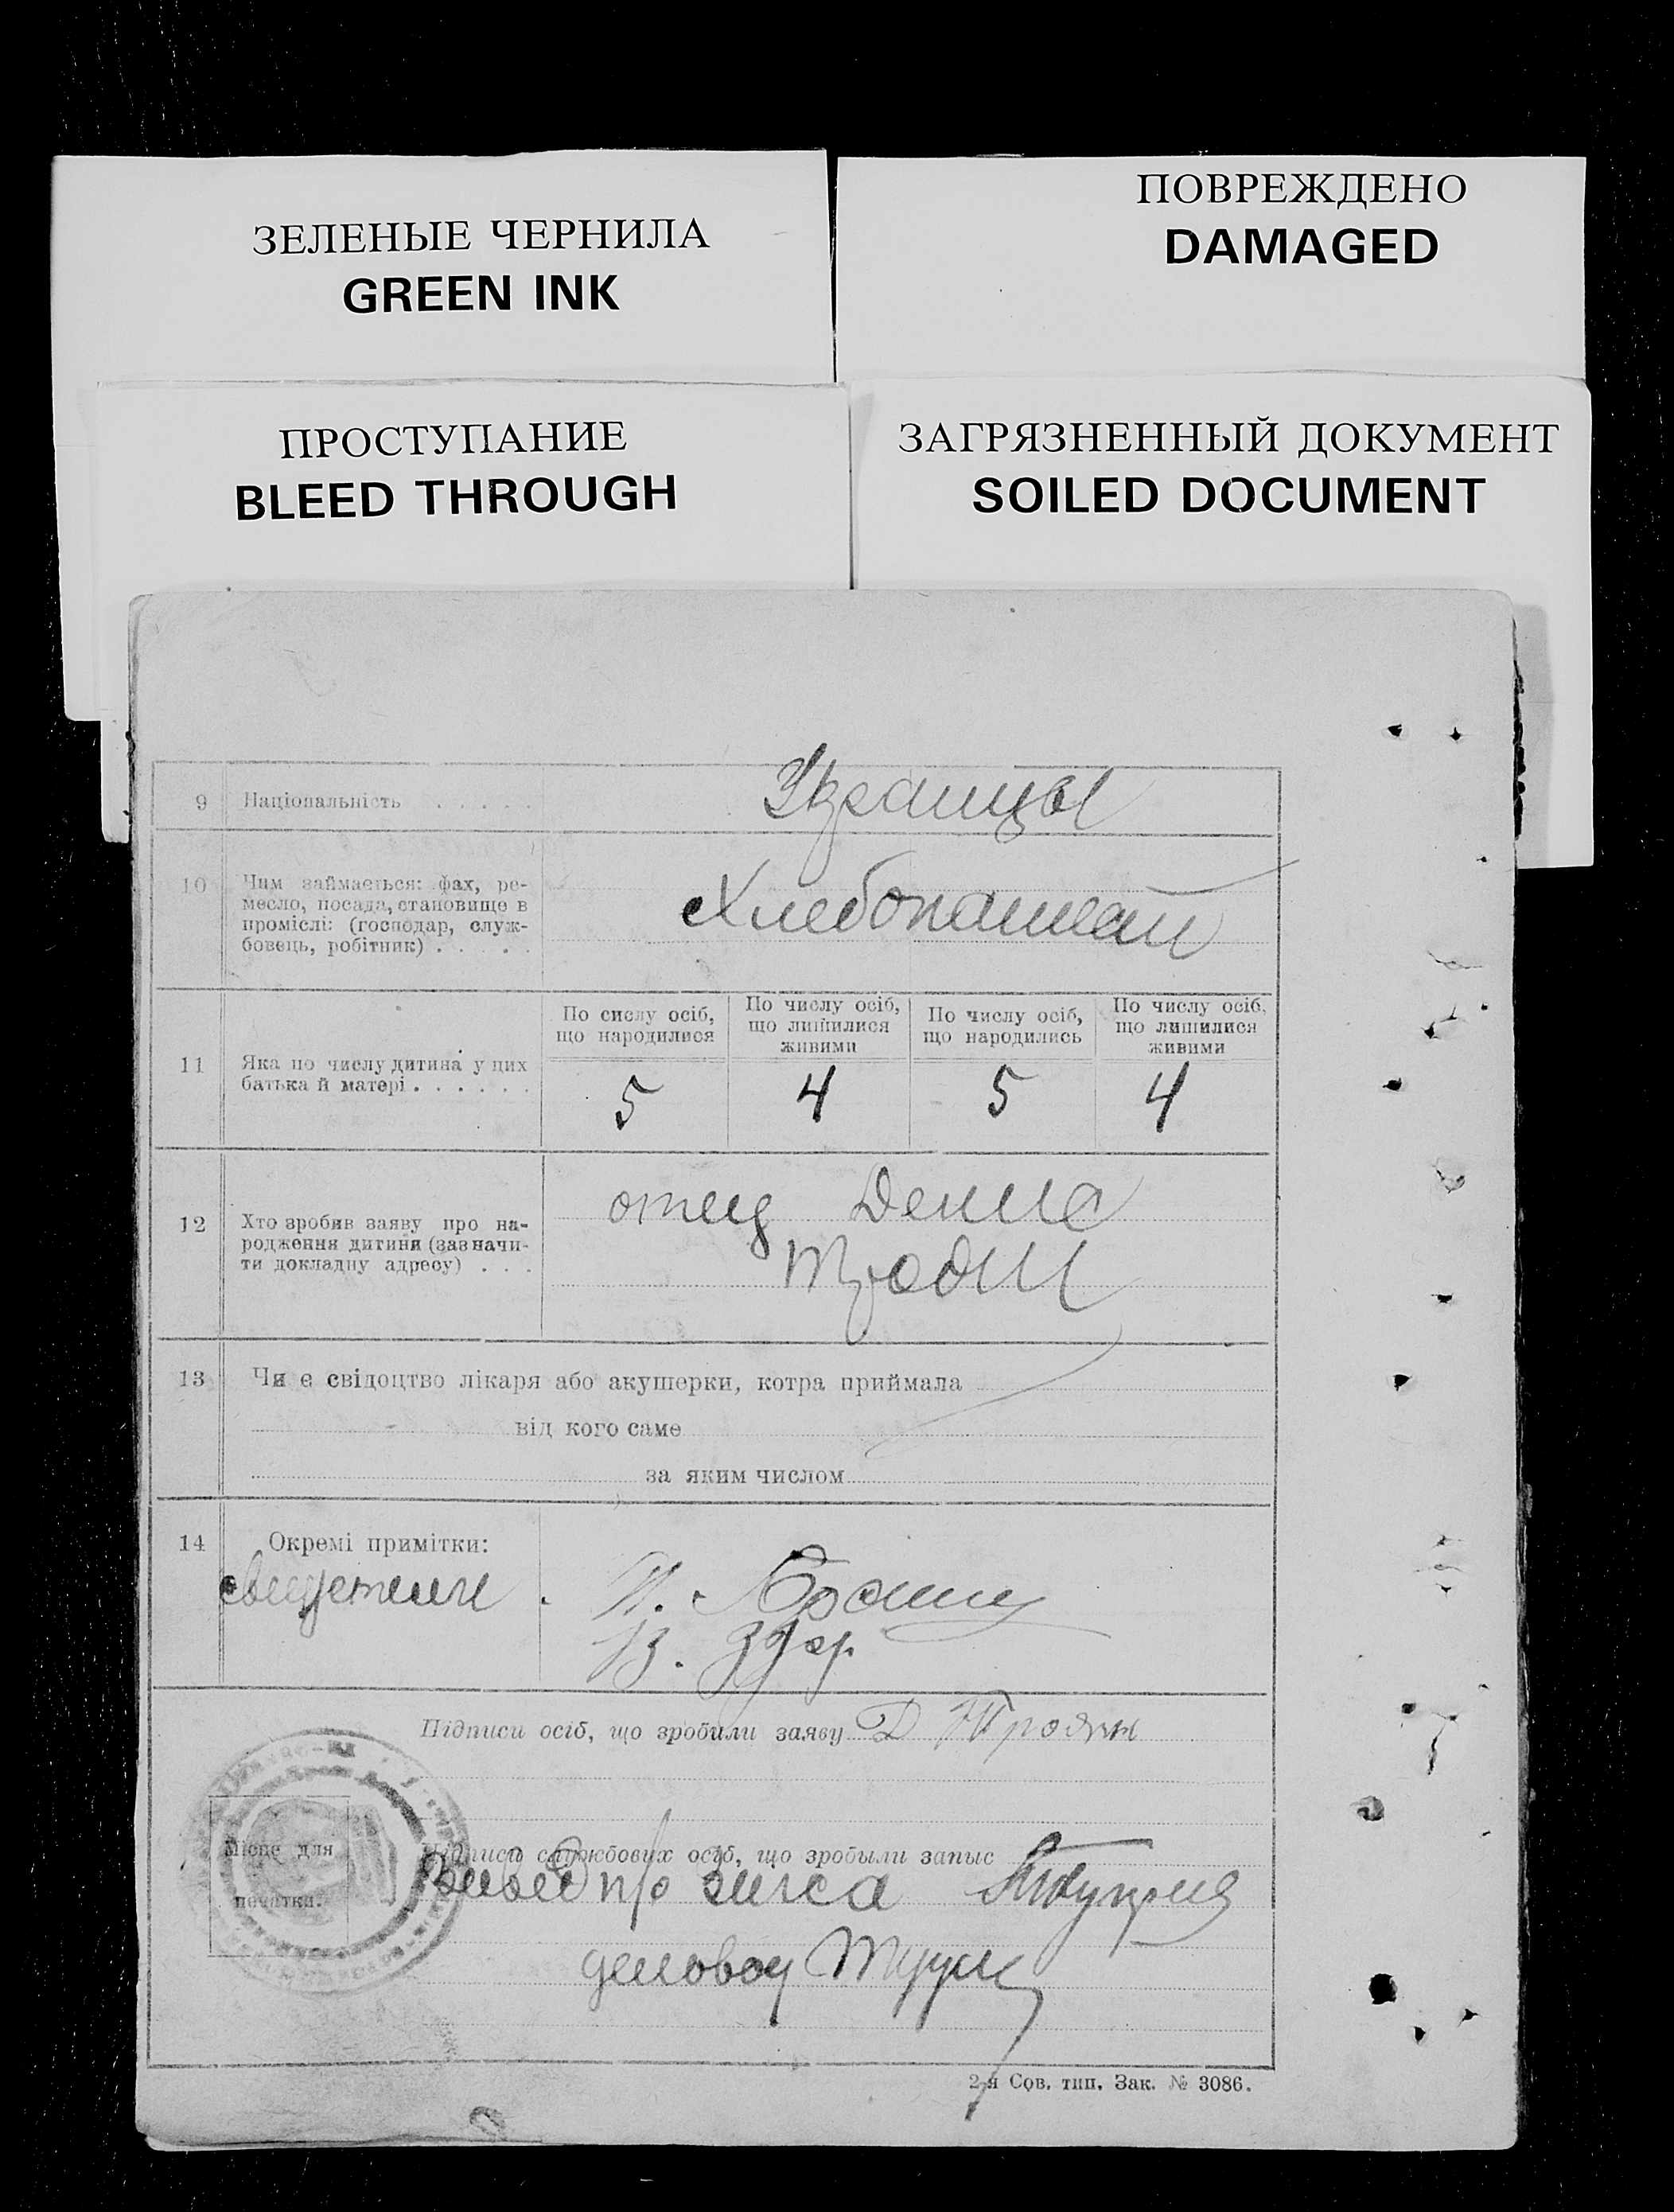 ЗЕЛЕНЫЕ ЧЕРНИЛА
GREEN INK
ПОВРЕЖДЕНО
DAMAGED
ПРОСТУПАНИЕ
BLEED THROUGH
ЗАГРЯЗНЕННЫЙ ДОКУМЕНТ
SOILED DOCUMENT
9 Національність . . . . . Украинцы
10 Чим займається: фах, ре-
месло, посада, становище в
проміслі: (господар, служ-
бовець, робітник) . . . .
Хлебопашец
По сислу осіб,
що народилися
По числу осіб,
що лишилися
живими
По числу осіб,
що народились
По числу осіб,
що лишилися
живими
11 Яка по числу дитина у цих
батька й матері . . . . . .
5 4 5 4
12 Хто зробив заяву про на-
родження дитини (зазначи-
ти докладну адресу) . . .
отец Денис
Троян
13 Чи є свідоцтво лікаря або акушерки, котра приймала
від кого саме
за яким числом
14 Окремі примітки:
свидетели
Підписи осіб, що зробили заяву Д Троян
Місце для
печатки.
Підписи службових осіб, що зробыли запыс
п/о загса
деловод
2-я Сов. тип. Зак. № 3086.